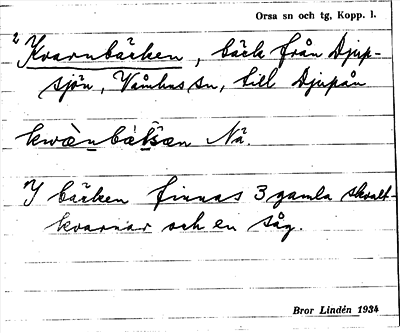 Orsa sn och tg, Kopp. l.
2 Kvarnbäcken, bäck från Djup-
sjön, Våmhus sn, till Djupån
kwànbä̀ksæn Nä.
"I bäcken finnas 3 gamla skvalt-
kvarnar och en såg.
Bror Lindén 1934